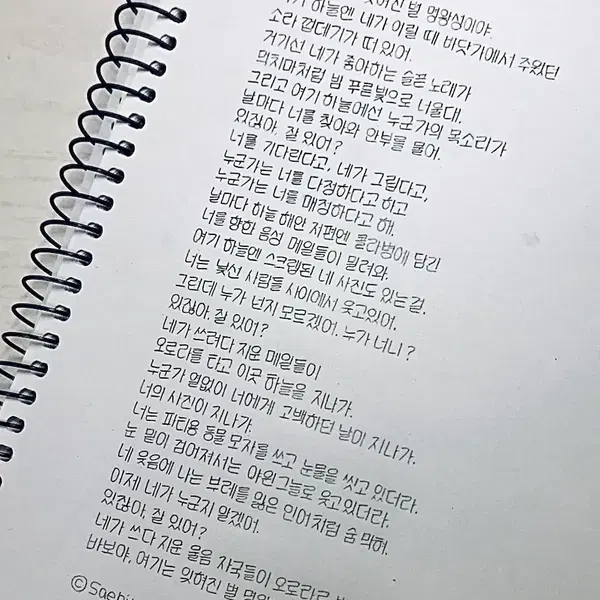 잊혀진 별 명왕성이야.
하늘엔 네가 어릴 때 바닷가에서 주웠던
소라 껍데기가 떠 있어.
거기선 네가 좋아하는 슬픈 노래가
먹치마처럼 밤 푸른빛으로 너울대.
그리고 여기 하늘에선 누군가의 목소리가
날마다 너를 찾아와 안부를 물어.
있잖아, 잘 있어?
너를 기다린다고, 네가 그립다고,
누군가는 너를 다정하다고 하고
누군가는 너를 매정하다고 해.
날마다 하늘 해안 저편엔 콜라병에 담긴
너를 향한 음성 메일들이 밀려와.
여기 하늘엔 스크랩된 네 사진도 있는걸.
너는 낯선 사람들 사이에서 웃고있어.
그런데 누가 넌지 모르겠어. 누가 너니?
있잖아, 잘 있어?
네가 쓰려다 지운 메일들이
오로라를 타고 이곳 하늘을 지나가.
누군가 열없이 너에게 고백하던 날이 지나가.
너의 사진이 지나가.
너는 파티용 동물 모자를 쓰고 눈물을 씻고 있더라.
눈 밑이 검어져서는 야윈 그늘로 웃고있더라.
네 웃음에 나는 부레를 잃은 인어처럼 숨 막혀.
이제 네가 누군지 알겠어.
있잖아, 잘 있어?
네가 쓰다 지운 울음 자국들이 오로라로
바보야, 여기는 잊혀진 별
©